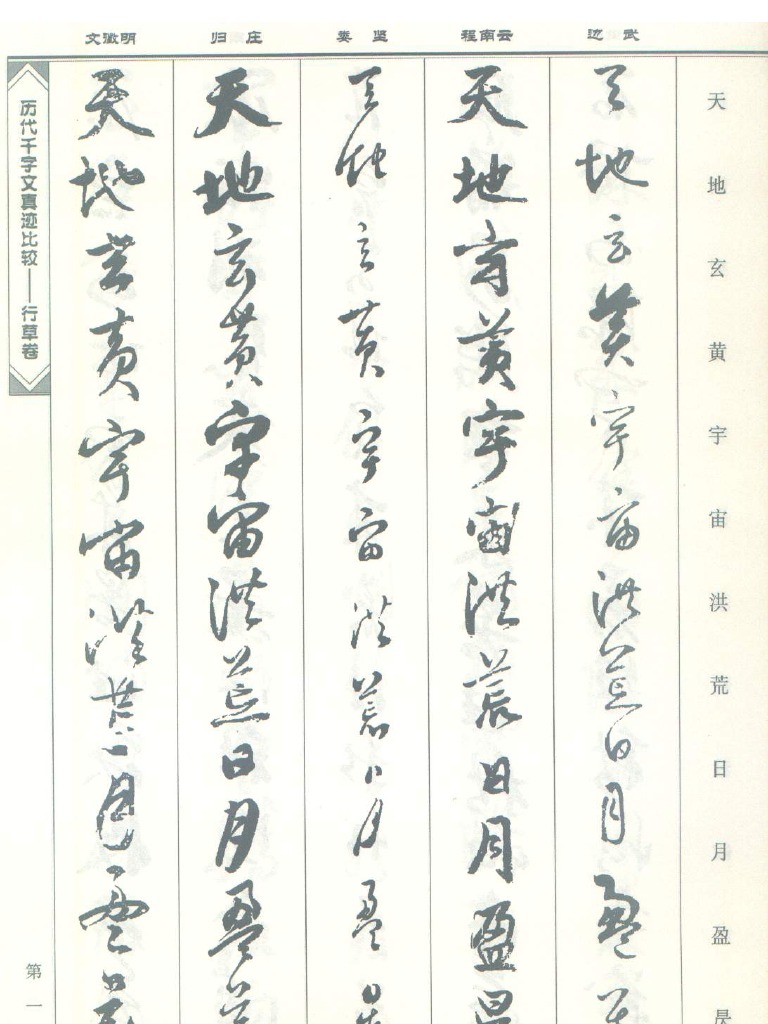 天地玄黄宇宙洪荒日月盈昃
边武
天地玄黄宇宙洪荒日月盈昃
程南云
天地玄黄宇宙洪荒日月盈昃
娄坚
天地玄黄宇宙洪荒日月盈昃
归庄
天地玄黄宇宙洪荒日月盈昃
文徵明
天地玄黄宇宙洪荒日月盈昃
历代千字文真迹比较——行草卷
第一